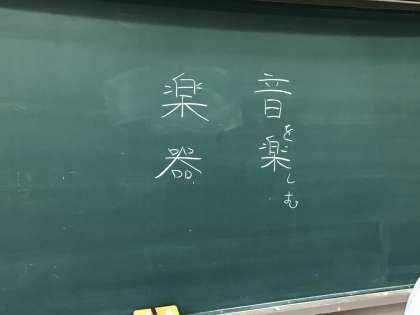 音を楽しむ
楽器